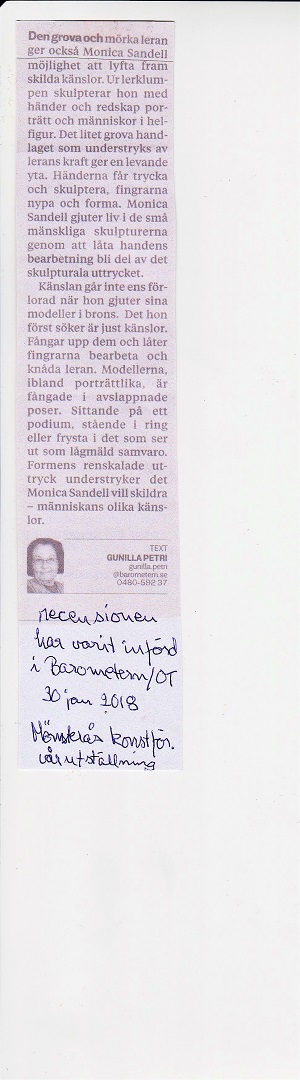 Den grova och mörka leran
ger också Monica Sandell
möjlighet att lyfta fram
skilda känslor. Ur lerklum-
pen skulpterar hon med
händer och redskap por-
trätt och människor i hel-
figur. Det litet grova hand-
laget som understryks av
lerans kraft ger en levande
yta. Händerna får trycka
och skulptera, fingrarna
nypa och forma. Monica
Sandell gjuter liv i de små
mänskliga skulpturerna
genom att låta handens
bearbetning bli del av det
skulpturala uttrycket.
Känslan går inte ens för-
lorad när hon gjuter sina
modeller i brons. Det hon
först söker är just känslor.
Fångar upp dem och låter
fingrarna bearbeta och
knåda leran. Modellerna,
ibland porträttlika, är
fångade i avslappnade
poser. Sittande på ett
podium, stående i ring
eller frysta i det som ser
ut som lågmäld samvaro.
Formens renskalade ut-
tryck understryker det
Monica Sandell vill skildra
– människans olika käns-
lor.
TEXT
GUNILLA PETRI
gunilla.petri
@barometern.se
0480-592 37
recensionen
har varit införd
i Barometern/OT
30 jan 2018
Mönsterås konstför.
vårutställning